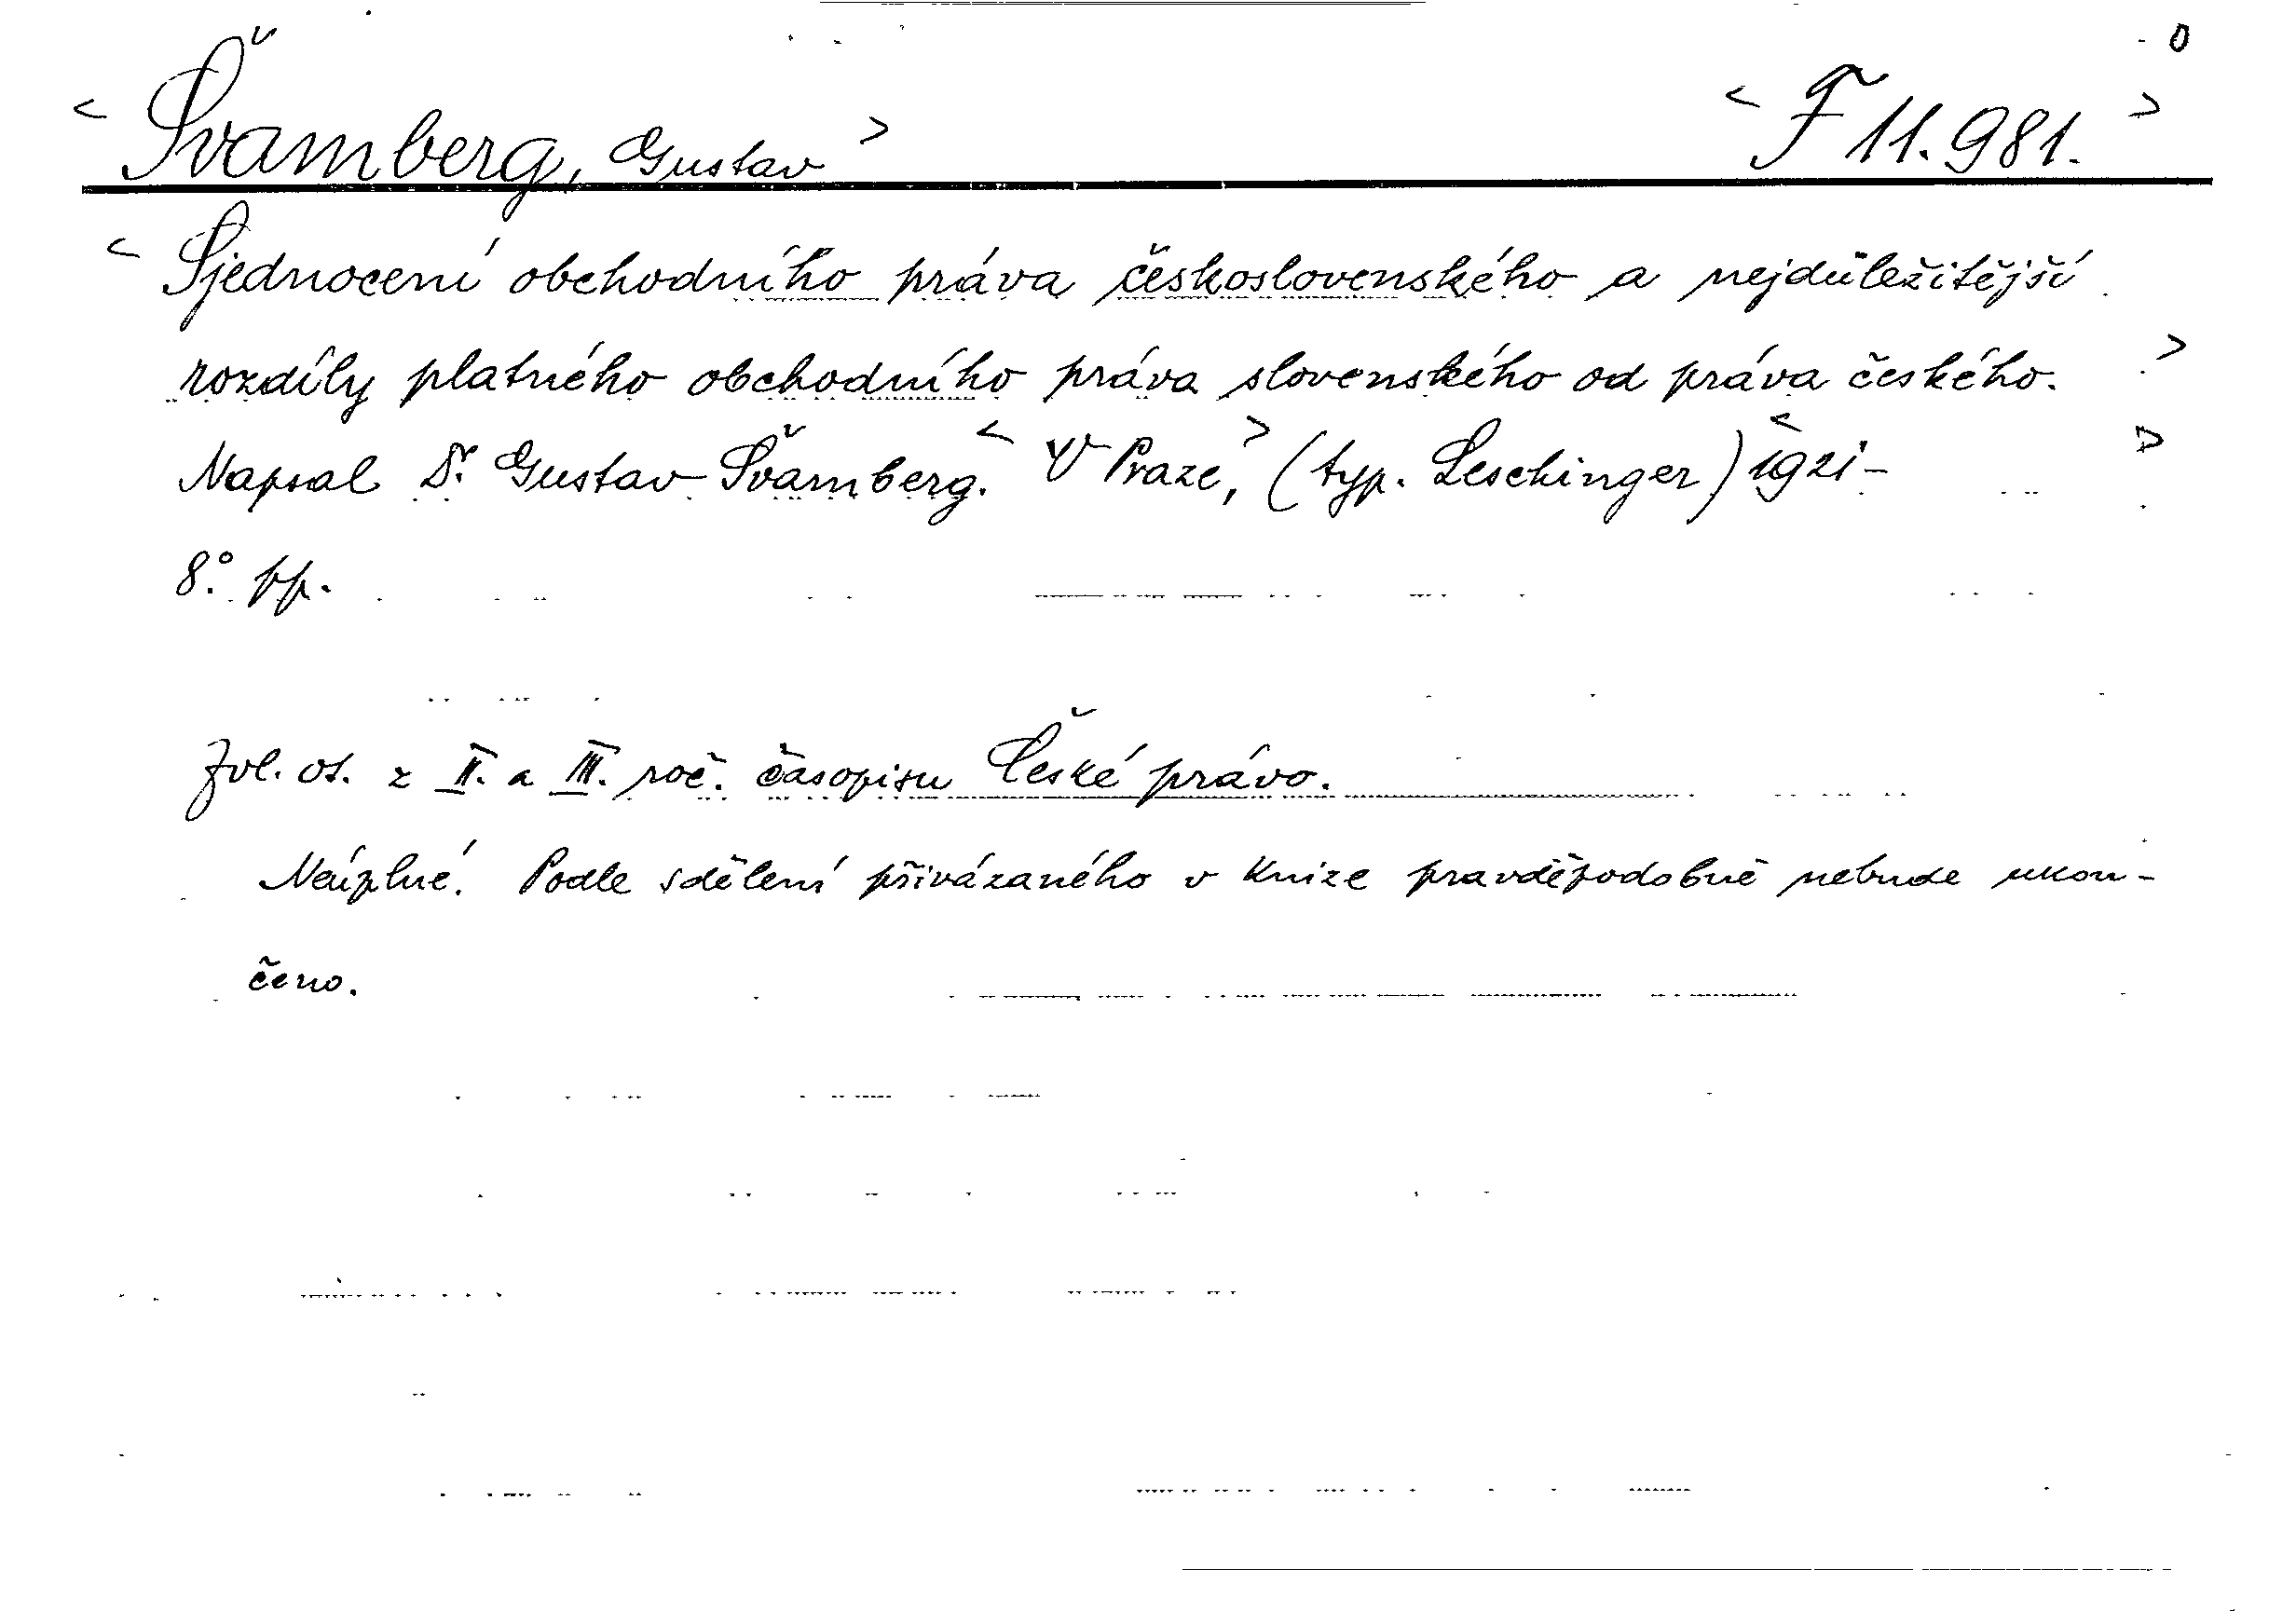 0
< Švamberg, Gustav > < F 11.981. >
< Sjednocení obchodního práva československého a nejdůležitější
rozdíly platného obchodního práva slovenského od práva českého. >
Napsal Dr. Gustav Švamberg. < V Praze, > (typ. Leschinger) < 1921- >
8°. pp.
Zvl. ot. z II. a III. roč. časopisu České právo.
Neúplné. Podle sdělení přivázaného v knize pravděpodobně nebude ukon-
čeno.